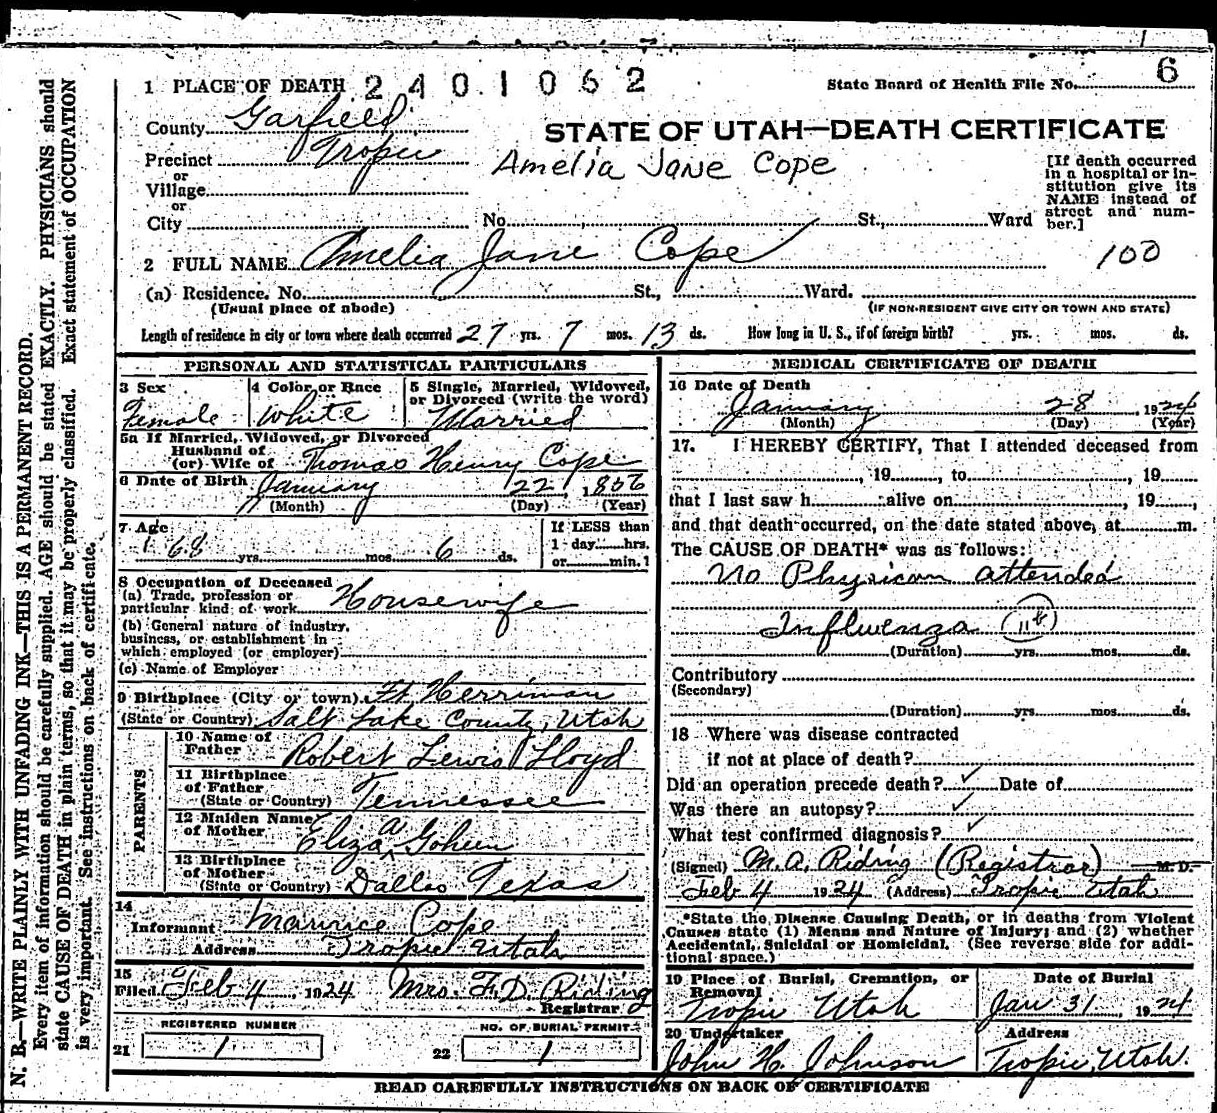 1 PLACE OF DEATH 2401062
State Board of Health File No. 6
County Garfield
STATE OF UTAH—DEATH CERTIFICATE
Precinct Tropic
Amelia Jane Cope
or
Village
or
City No. St., Ward
[If death occurred
in a hospital or in-
stitution give its
NAME instead of
street and num-
ber.]
2 FULL NAME Amelia Jane Cope
100
(a) Residence. No. St., Ward.
(Usual place of abode) (IF NON-RESIDENT GIVE CITY OR TOWN AND STATE)
Length of residence in city or town where death occurred 27 yrs. 7 mos. 13 ds. How long in U. S., if of foreign birth? yrs. mos. ds.
PERSONAL AND STATISTICAL PARTICULARS
3 Sex
Female
4 Color or Race
White
5 Single, Married, Widowed,
or Divorced (write the word)
Married
5a If Married, Widowed, or Divorced
Husband of
(or) Wife of Thomas Henry Cope
6 Date of Birth January 22, 1856
(Month) (Day) (Year)
7 Age
68 yrs. mos. 6 ds.
If LESS than
1 day hrs.
or min.?
8 Occupation of Deceased
(a) Trade, profession or
particular kind of work Housewife
(b) General nature of industry,
business, or establishment in
which employed (or employer)
(c) Name of Employer
9 Birthplace (City or town) Ft. Herriman
(State or Country) Salt Lake County, Utah
PARENTS
10 Name of
Father Robert Lewis Lloyd
11 Birthplace
of Father
(State or Country) Tennessee
12 Maiden Name
of Mother Eliza A Goheen
13 Birthplace
of Mother
(State or Country) Dallas Texas
14
Informant Maurice Cope
Address Tropic Utah
15
Filed Feb 4, 1924 Mrs. F. D. Riding
Registrar
REGISTERED NUMBER
21 1
NO. OF BURIAL PERMIT
22 1
MEDICAL CERTIFICATE OF DEATH
16 Date of Death
January 28, 1924
(Month) (Day) (Year)
17. I HEREBY CERTIFY, That I attended deceased from
, 19 , to , 19
that I last saw h alive on , 19 ,
and that death occurred, on the date stated above, at m.
The CAUSE OF DEATH* was as follows:
No Physican attended
Influenza (11b)
(Duration) yrs. mos. ds.
Contributory
(Secondary)
(Duration) yrs. mos. ds.
18 Where was disease contracted
if not at place of death?
Did an operation precede death? ✓ Date of
Was there an autopsy? ✓
What test confirmed diagnosis? ✓
(Signed) M. A. Riding (Registrar) M. D.
Feb 4 1924 (Address) Tropic Utah
*State the Disease Causing Death, or in deaths from Violent
Causes state (1) Means and Nature of Injury; and (2) whether
Accidental, Suicidal or Homicidal. (See reverse side for addi-
tional space.)
19 Place of Burial, Cremation, or
Removal
Tropic Utah
Date of Burial
Jan 31 1924
20 Undertaker
John H. Johnson
Address
Tropic, Utah.
READ CAREFULLY INSTRUCTIONS ON BACK OF CERTIFICATE
N. B.—WRITE PLAINLY WITH UNFADING INK—THIS IS A PERMANENT RECORD.
Every item of information should be carefully supplied. AGE should be stated EXACTLY. PHYSICIANS should
state CAUSE OF DEATH in plain terms, so that it may be properly classified. Exact statement of OCCUPATION
is very important. See instructions on back of certificate.